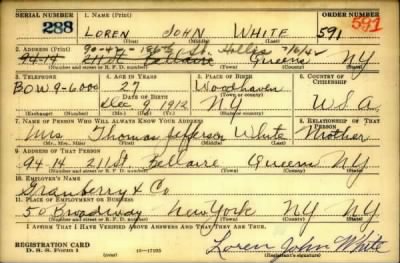 SERIAL NUMBER 1. NAME (Print) ORDER NUMBER
288 LOREN JOHN WHITE 591 591
(First) (Middle) (Last)
2. ADDRESS (Print) 90-47- St. Hollis 7/6/42
94-14 211 St. Bellaire Queens NY
(Number and street or R. F. D. number) (Town) (County) (State)
3. TELEPHONE 4. AGE IN YEARS 5. PLACE OF BIRTH 6. COUNTRY OF CITIZENSHIP
BOW 9-6000 27 Woodhaven
DATE OF BIRTH (Town or county)
Dec 9 1912 NY U.S.A.
(Exchange) (Number) (Mo.) (Day) (Yr.) (State or country)
7. NAME OF PERSON WHO WILL ALWAYS KNOW YOUR ADDRESS 8. RELATIONSHIP OF THAT PERSON
Mrs Thomas Jefferson White Mother
(Mr., Mrs., Miss) (First) (Middle) (Last)
9. ADDRESS OF THAT PERSON
94-14 211 St Bellaire Queens NY
(Number and street or R. F. D. number) (Town) (County) (State)
10. EMPLOYER'S NAME
Granberry & Co
11. PLACE OF EMPLOYMENT OR BUSINESS
50 Broadway New York NY NY
(Number and street or R. F. D. number) (Town) (County) (State)
I AFFIRM THAT I HAVE VERIFIED ABOVE ANSWERS AND THAT THEY ARE TRUE.
REGISTRATION CARD
D. S. S. Form 1 (over) 16-17105 Loren John White
(Registrant's signature)